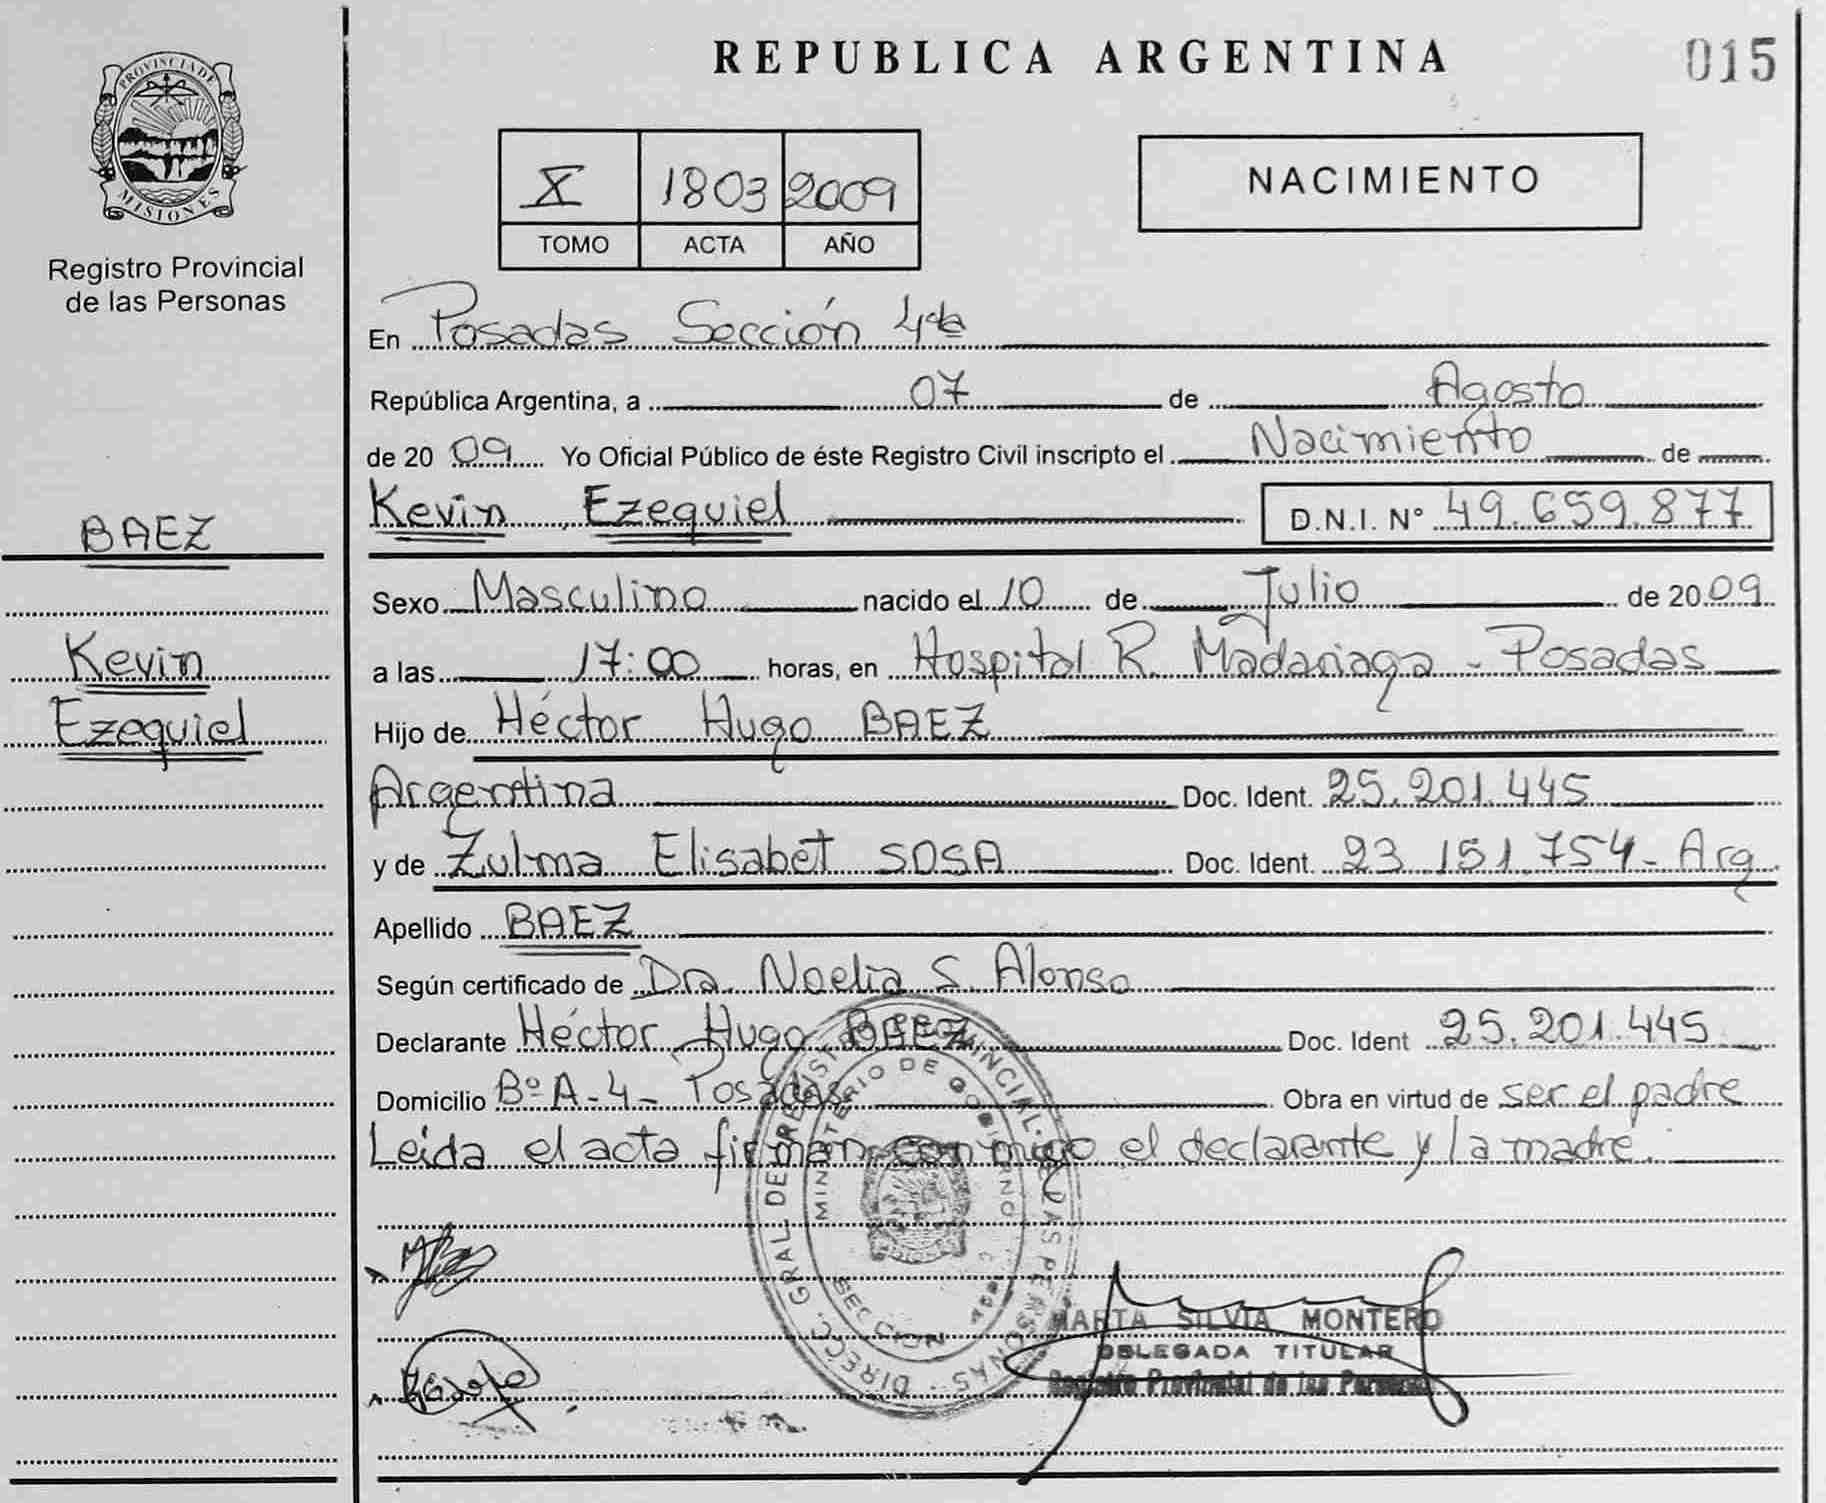 REPUBLICA ARGENTINA
015
PROVINCIA DE
MISIONES
Registro Provincial
de las Personas
X 1803 2009
TOMO ACTA AÑO
NACIMIENTO
En Posadas Sección 4ta
República Argentina, a 07 de Agosto
de 20 09 Yo Oficial Público de éste Registro Civil inscripto el Nacimiento de
Kevin Ezequiel D.N.I. N° 49.659.877
BAEZ
Kevin
Ezequiel
Sexo Masculino nacido el 10 de Julio de 20 09
a las 17:00 horas, en Hospital R. Madariaga - Posadas
Hijo de Héctor Hugo BAEZ
Argentina Doc. Ident. 25.201.445
y de Zulma Elisabet SOSA Doc. Ident. 23.151.754 - Arg.
Apellido BAEZ
Según certificado de Dra. Noelia S. Alonso
Declarante Héctor Hugo BAEZ Doc. Ident 25.201.445
Domicilio Bº A-4 - Posadas Obra en virtud de ser el padre
Leida el acta firman conmigo el declarante y la madre.
DIRECC. GRAL DE REGISTRO PROVINCIAL DE LAS PERSONAS
MINISTERIO DE GOBIERNO
SECCION
MARTA SILVIA MONTERO
DELEGADA TITULAR
Registro Provincial de las Personas